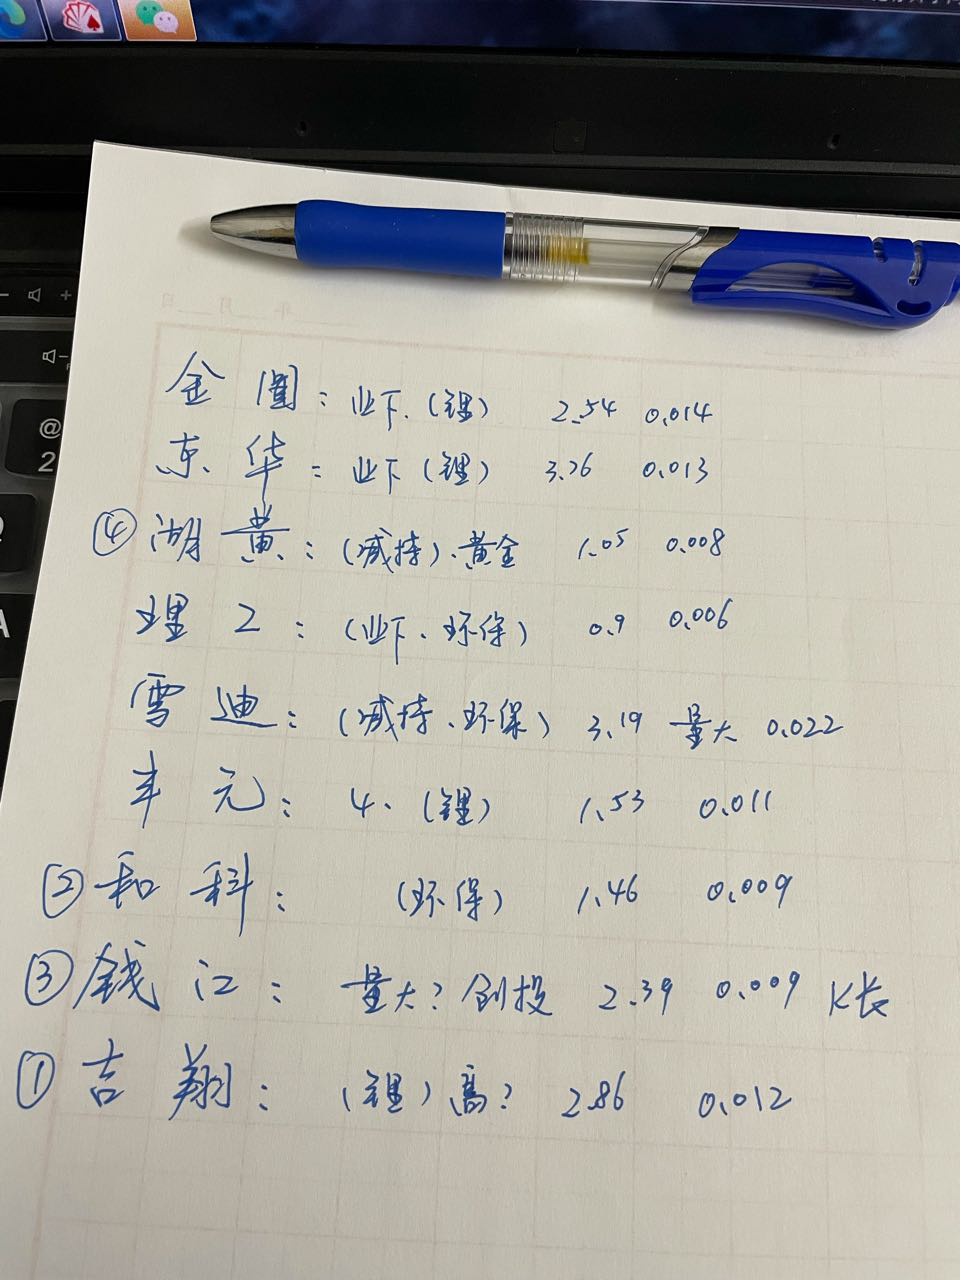 金圆：业下.（锂） 2.54 0.014
京华：业下（锂） 3.26 0.013
④湖黄：（减持）.黄金 1.05 0.008
理工：（业下.环保） 0.9 0.006
雪迪：（减持.环保） 3.19 量大 0.022
丰元：4.（锂） 1.53 0.011
②和科：（环保） 1.46 0.009
③钱江：量大？创投 2.39 0.009 K长
①吉翔：（锂）高？ 2.86 0.012